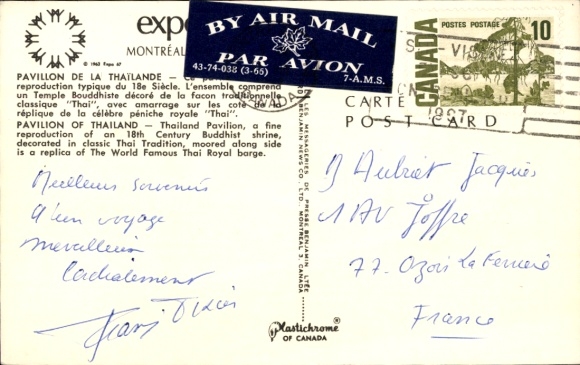 expo
© 1963 Expo 67
MONTRÉAL
BY AIR MAIL
PAR AVION
43-74-038 (3-65)
7-A.M.S.
POSTES POSTAGE
10
CANADA
CANADA
CARTE
POST CARD
PAVILLON DE LA THAÏLANDE — Ce
reproduction typique du 18e Siècle. L'ensemble comprend
un Temple Bouddhiste décoré de la façon traditionnelle
classique "Thai", avec amarrage sur les coté de la
réplique de la célèbre péniche royale "Thai".
PAVILION OF THAILAND — Thailand Pavilion, a fine
reproduction of an 18th Century Buddhist shrine,
decorated in classic Thai Tradition, moored along side
is a replica of The World Famous Thai Royal barge.
Meilleurs souvenirs
d'un voyage
merveilleux
Cordialement
LES MESSAGERIES DE PRESSE BENJAMIN LTÉE
BENJAMIN NEWS CO. LTD. MONTREAL 3, CANADA
Aubriet Jacques
1 AV Joffre
77. Ozoir La Ferriere
France
Plastichrome ®
OF CANADA